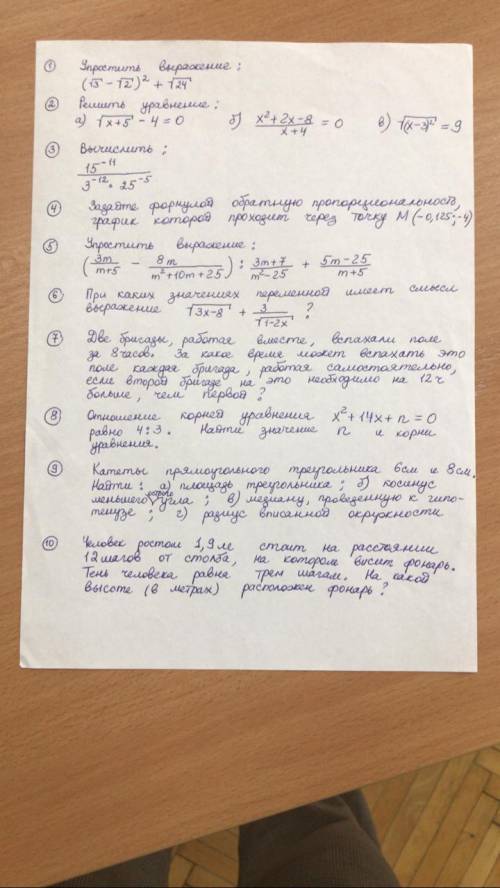 ① Упростить выражение:
(√3 − √2)² + √24
② Решить уравнение:
а) √x+5 − 4 = 0   б) x²+2x−8 / x+4 = 0   в) √(x−3)² = 9
③ Вычислить:
15⁻¹¹ / 3⁻¹² · 25⁻⁵
④ Задайте формулой обратную пропорциональность,
график которой проходит через точку M (−0,125; −4)
⑤ Упростить выражение:
(3m / m+5 − 8m / m²+10m+25) : 3m+7 / m²−25 + 5m−25 / m+5
⑥ При каких значениях переменной имеет смысл
выражение √3x−8 + 3 / √1−2x ?
⑦ Две бригады, работая вместе, вспахали поле
за 8 часов. За какое время может вспахать это
поле каждая бригада, работая самостоятельно,
если второй бригаде на это необходимо на 12 ч
больше, чем первой?
⑧ Отношение корней уравнения x²+14x+n=0
равно 4:3. Найти значение n и корни
уравнения.
⑨ Катеты прямоугольного треугольника 6см и 8см.
Найти: а) площадь треугольника; б) косинус
меньшего острого угла; в) медиану, проведенную к гипо-
тенузе; г) радиус вписанной окружности
⑩ Человек ростом 1,9м стоит на расстоянии
12 шагов от столба, на котором висит фонарь.
Тень человека равна трем шагам. На какой
высоте (в метрах) расположен фонарь?